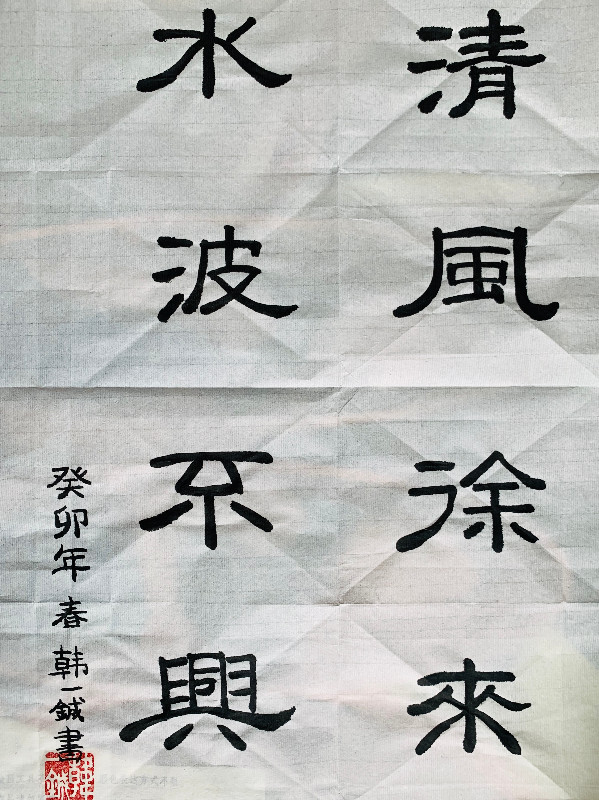 清風徐來
水波不興
癸卯年春韩一鋮書